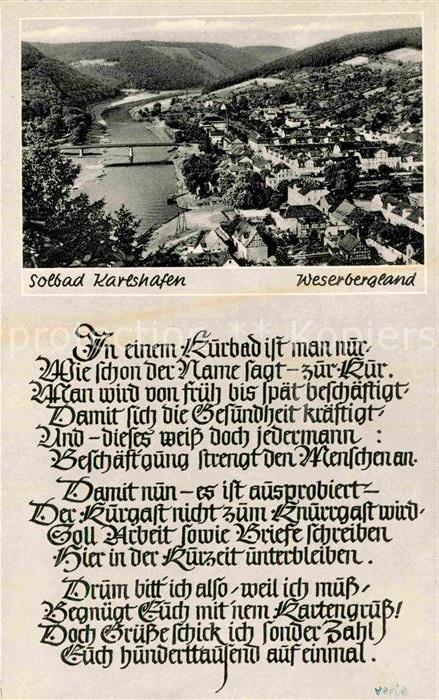 Solbad Karlshafen Weserbergland
In einem Kurbad ist man nur-
Wie schon der Name sagt - zur Kur.
Man wird von früh bis spät beschäftigt-
Damit sich die Gesundheit kräftigt-
Und - dieses weiß doch jedermann :
Beschäftgung strengt den Menschen an.
Damit nun - es ist ausprobiert -
Der Kurgast nicht zum Knurrgast wird-
Soll Arbeit sowie Briefe schreiben
Hier in der Kurzeit unterbleiben.
Drum bitt ich also - weil ich muß -
Begnügt Euch mit 'nem Kartengruß!
Doch Grüße schick ich sonder Zahl
Euch hunderttausend auf einmal.